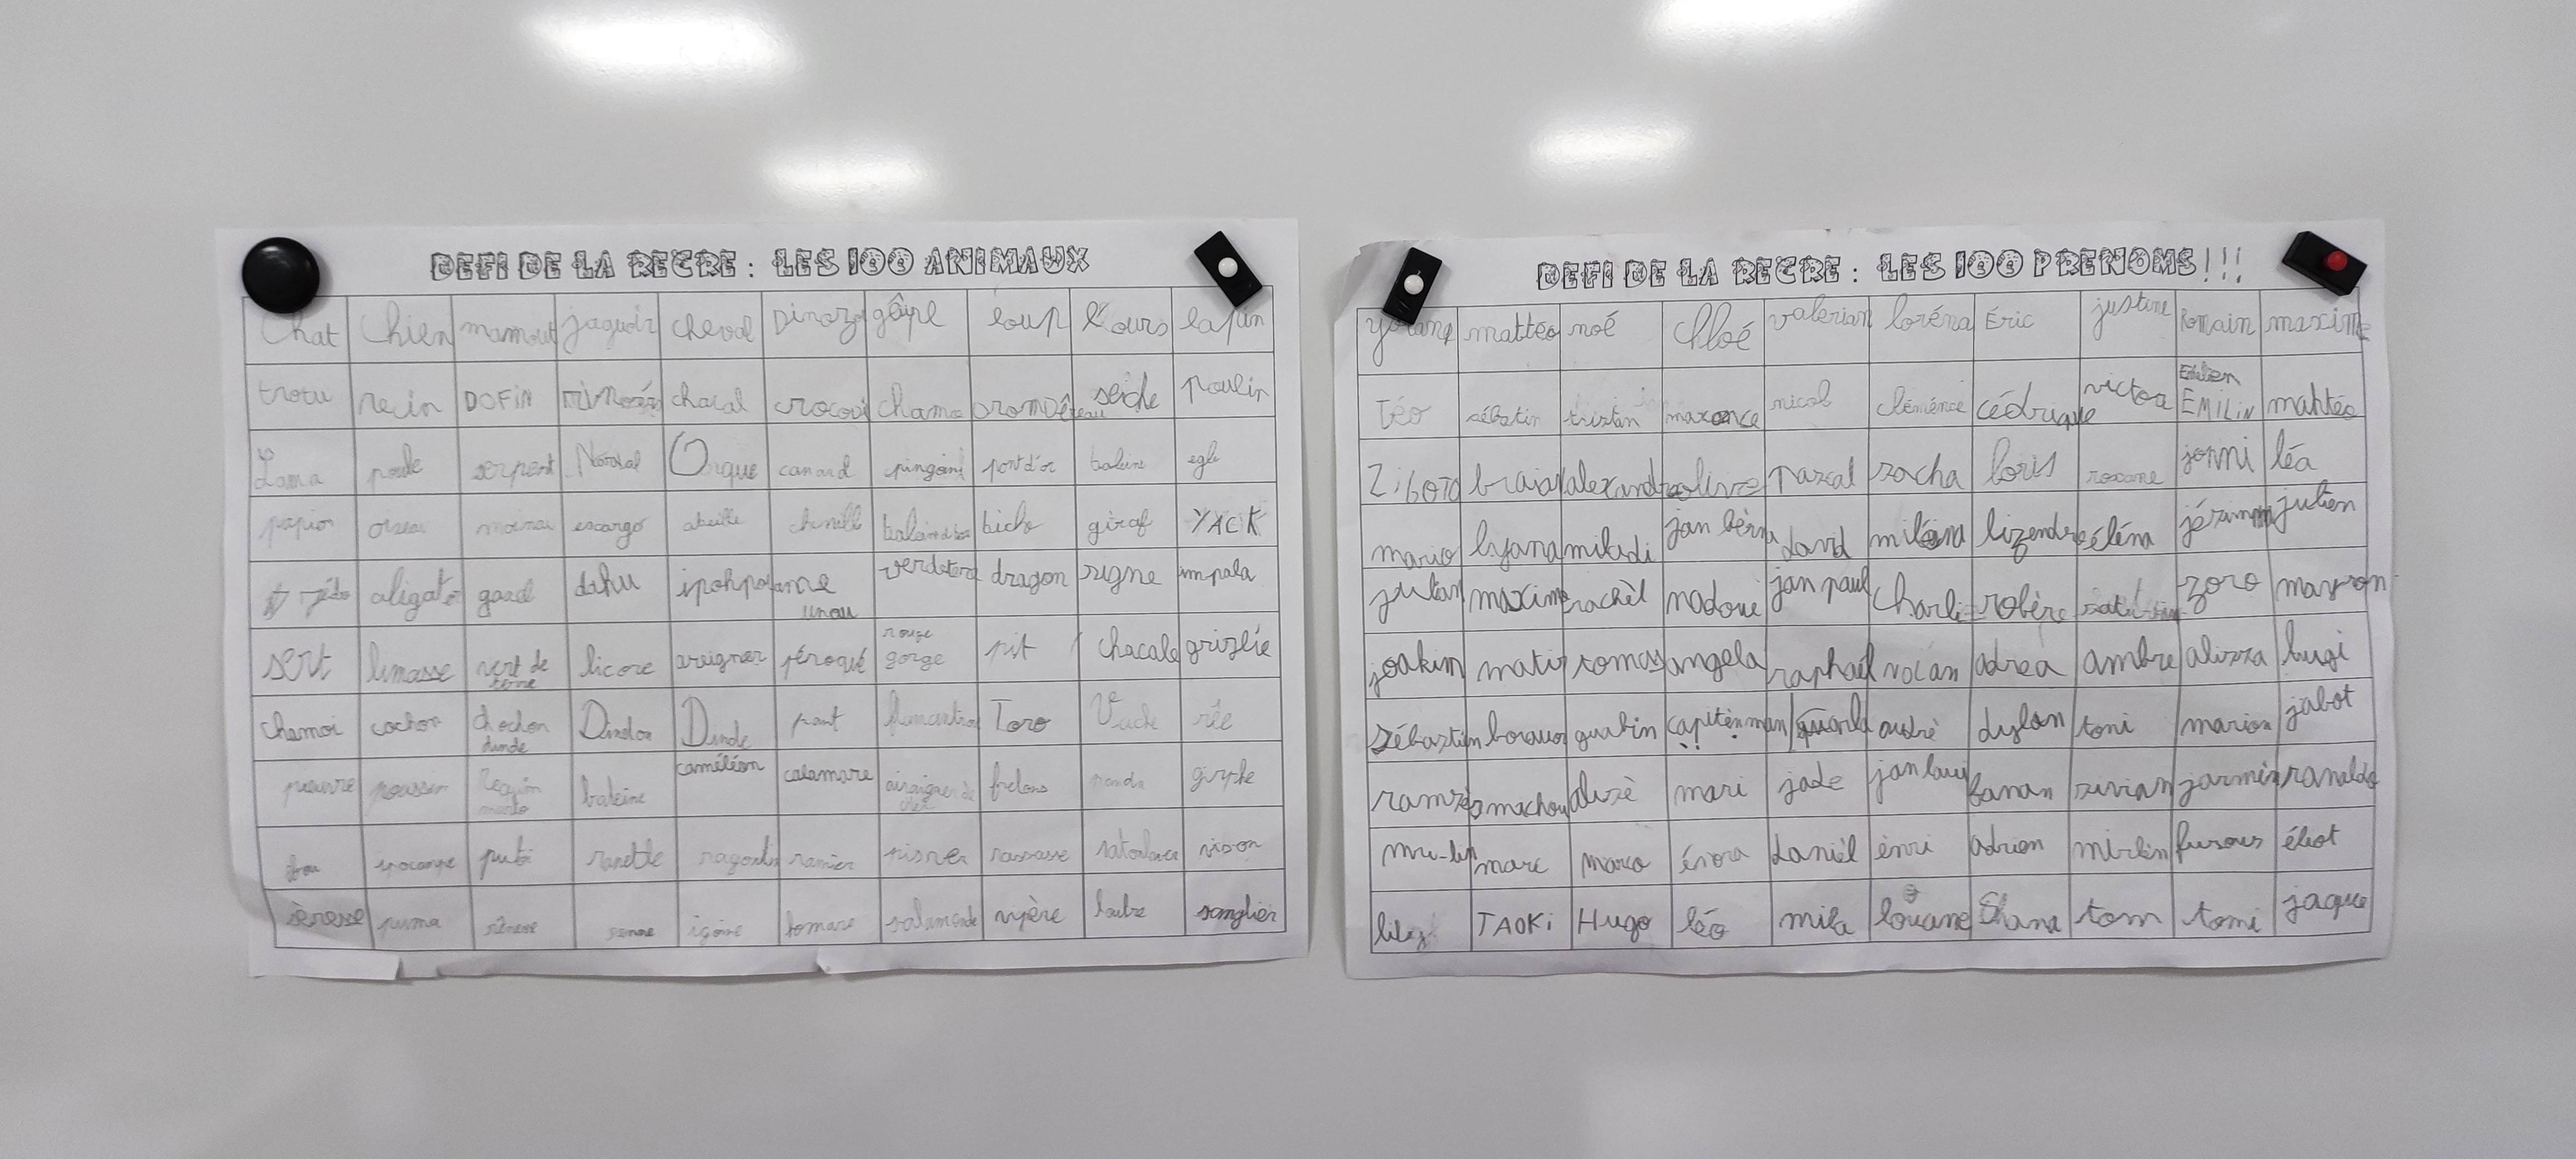 DEFI DE LA RECRE : LES 100 ANIMAUX
Chat chien mamout jaguoir cheval Dinozo loup l'ours lapin
trotu recin DOFIN chacal crocodi chamo DromDêreau seiche poulin
Lama poule serpent Narval Orque canard pingoint port d'or baleine egle
papion oiseau moineau escargo abeille chenille biche giraf YACK
aligator gazel dahu ipohpotame unau verdetere dragon signe impala
sert limasse vert de terre licore areigner péroqué rouge gorge pit chacale grizlie
chamoi cochon chochon dinde Dindon Dinde pant Toro Vache
pieuvre poussin Requin marto baleine caméléon calamare airaigner de frelons panda girphe
ibou ipocampe putoi ranette ragondin ramier rassasse vison
puma renne igoine lomare salamende vypère loutre sanglier
DEFI DE LA RECRE : LES 100 PRENOMS!!!
mattéo noé Chloé valérian loréna Éric justine Romain maxime
Téo sébatin tristan maxance nicol cléménce cédrique victor EMILIN mahtéo
braian alexandre olivre Pascal sacha loris roxane jonni léa
mario lyana miladi jan bèrna david miléna lizendre éléna jérimmi julien
julian maxime rachèl nadoue jan paul Charli robère zoro mayson
joakim mati tomas angela raphaël nolan adrea ambre alizza luigi
Sébastien guabin capiténman andrè dylan toni marion jabot
alizè mari jade jan laui banan vivian jarmin ranaldo
marc marco énora danièl ènri adrien mirlin furous éliot
TAOKI Hugo léo mila louane Shana tom tomi jaque